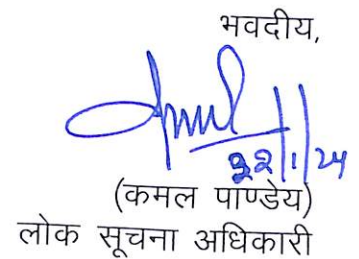 भवदीय,
22/1/24
(कमल पाण्डेय)
लोक सूचना अधिकारी